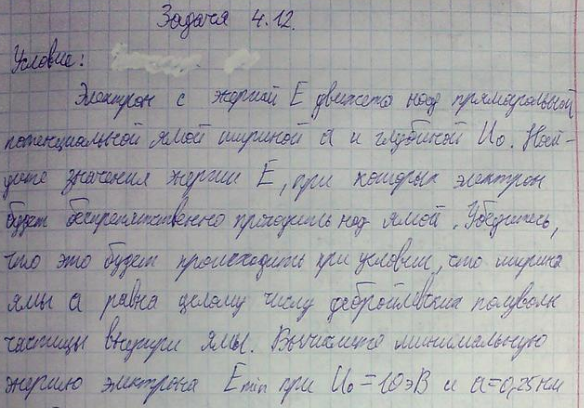 Задача 4.12.
Условие:
Электрон с энергией E движется над прямоугольной
потенциальной ямой шириной a и глубиной U₀. Най-
дите значения энергии E, при которых электрон
будет беспрепятственно проходить над ямой. Убедитесь,
что это будет происходить при условии, что ширина
ямы a равна целому числу дебройлевских полуволн
частицы внутри ямы. Вычислите минимальную
энергию электрона Emin при U₀ = 10 эВ и a=0,25 нм